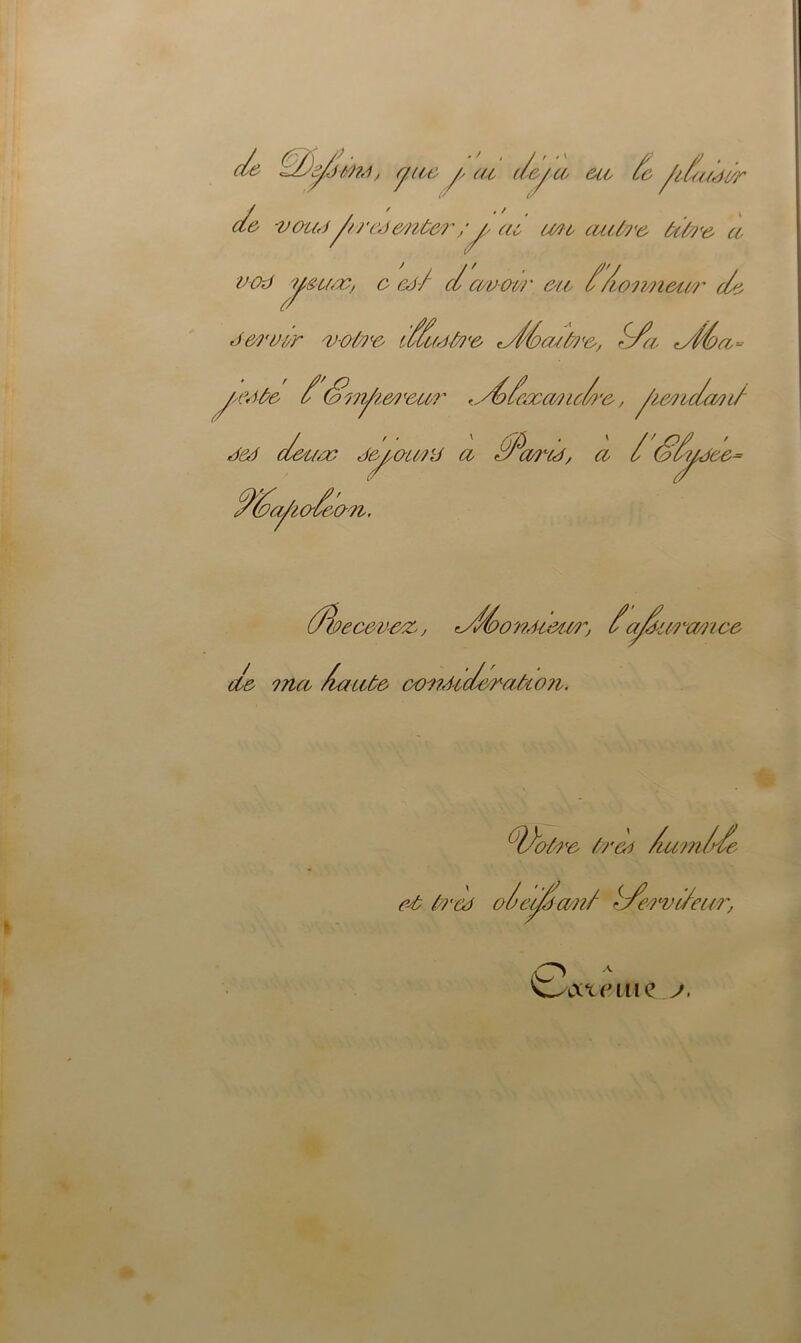 de Deſsins, que j'ai déja eu le plaisir
de vous présenter; j'ai un autre titre a
vos yeux, c'est d'avoir eu l'honneur de
servir votre illustre Maître, Sa Ma=
jesté l'Empereur Alexandre, pendant
ses deux séjours à Paris, à l'Elysée=
Napoléon.
Recevez, Monsieur, l'aſsurance
de ma haute considération.
Votre très humble
et très obéiſsant Serviteur,
Carême